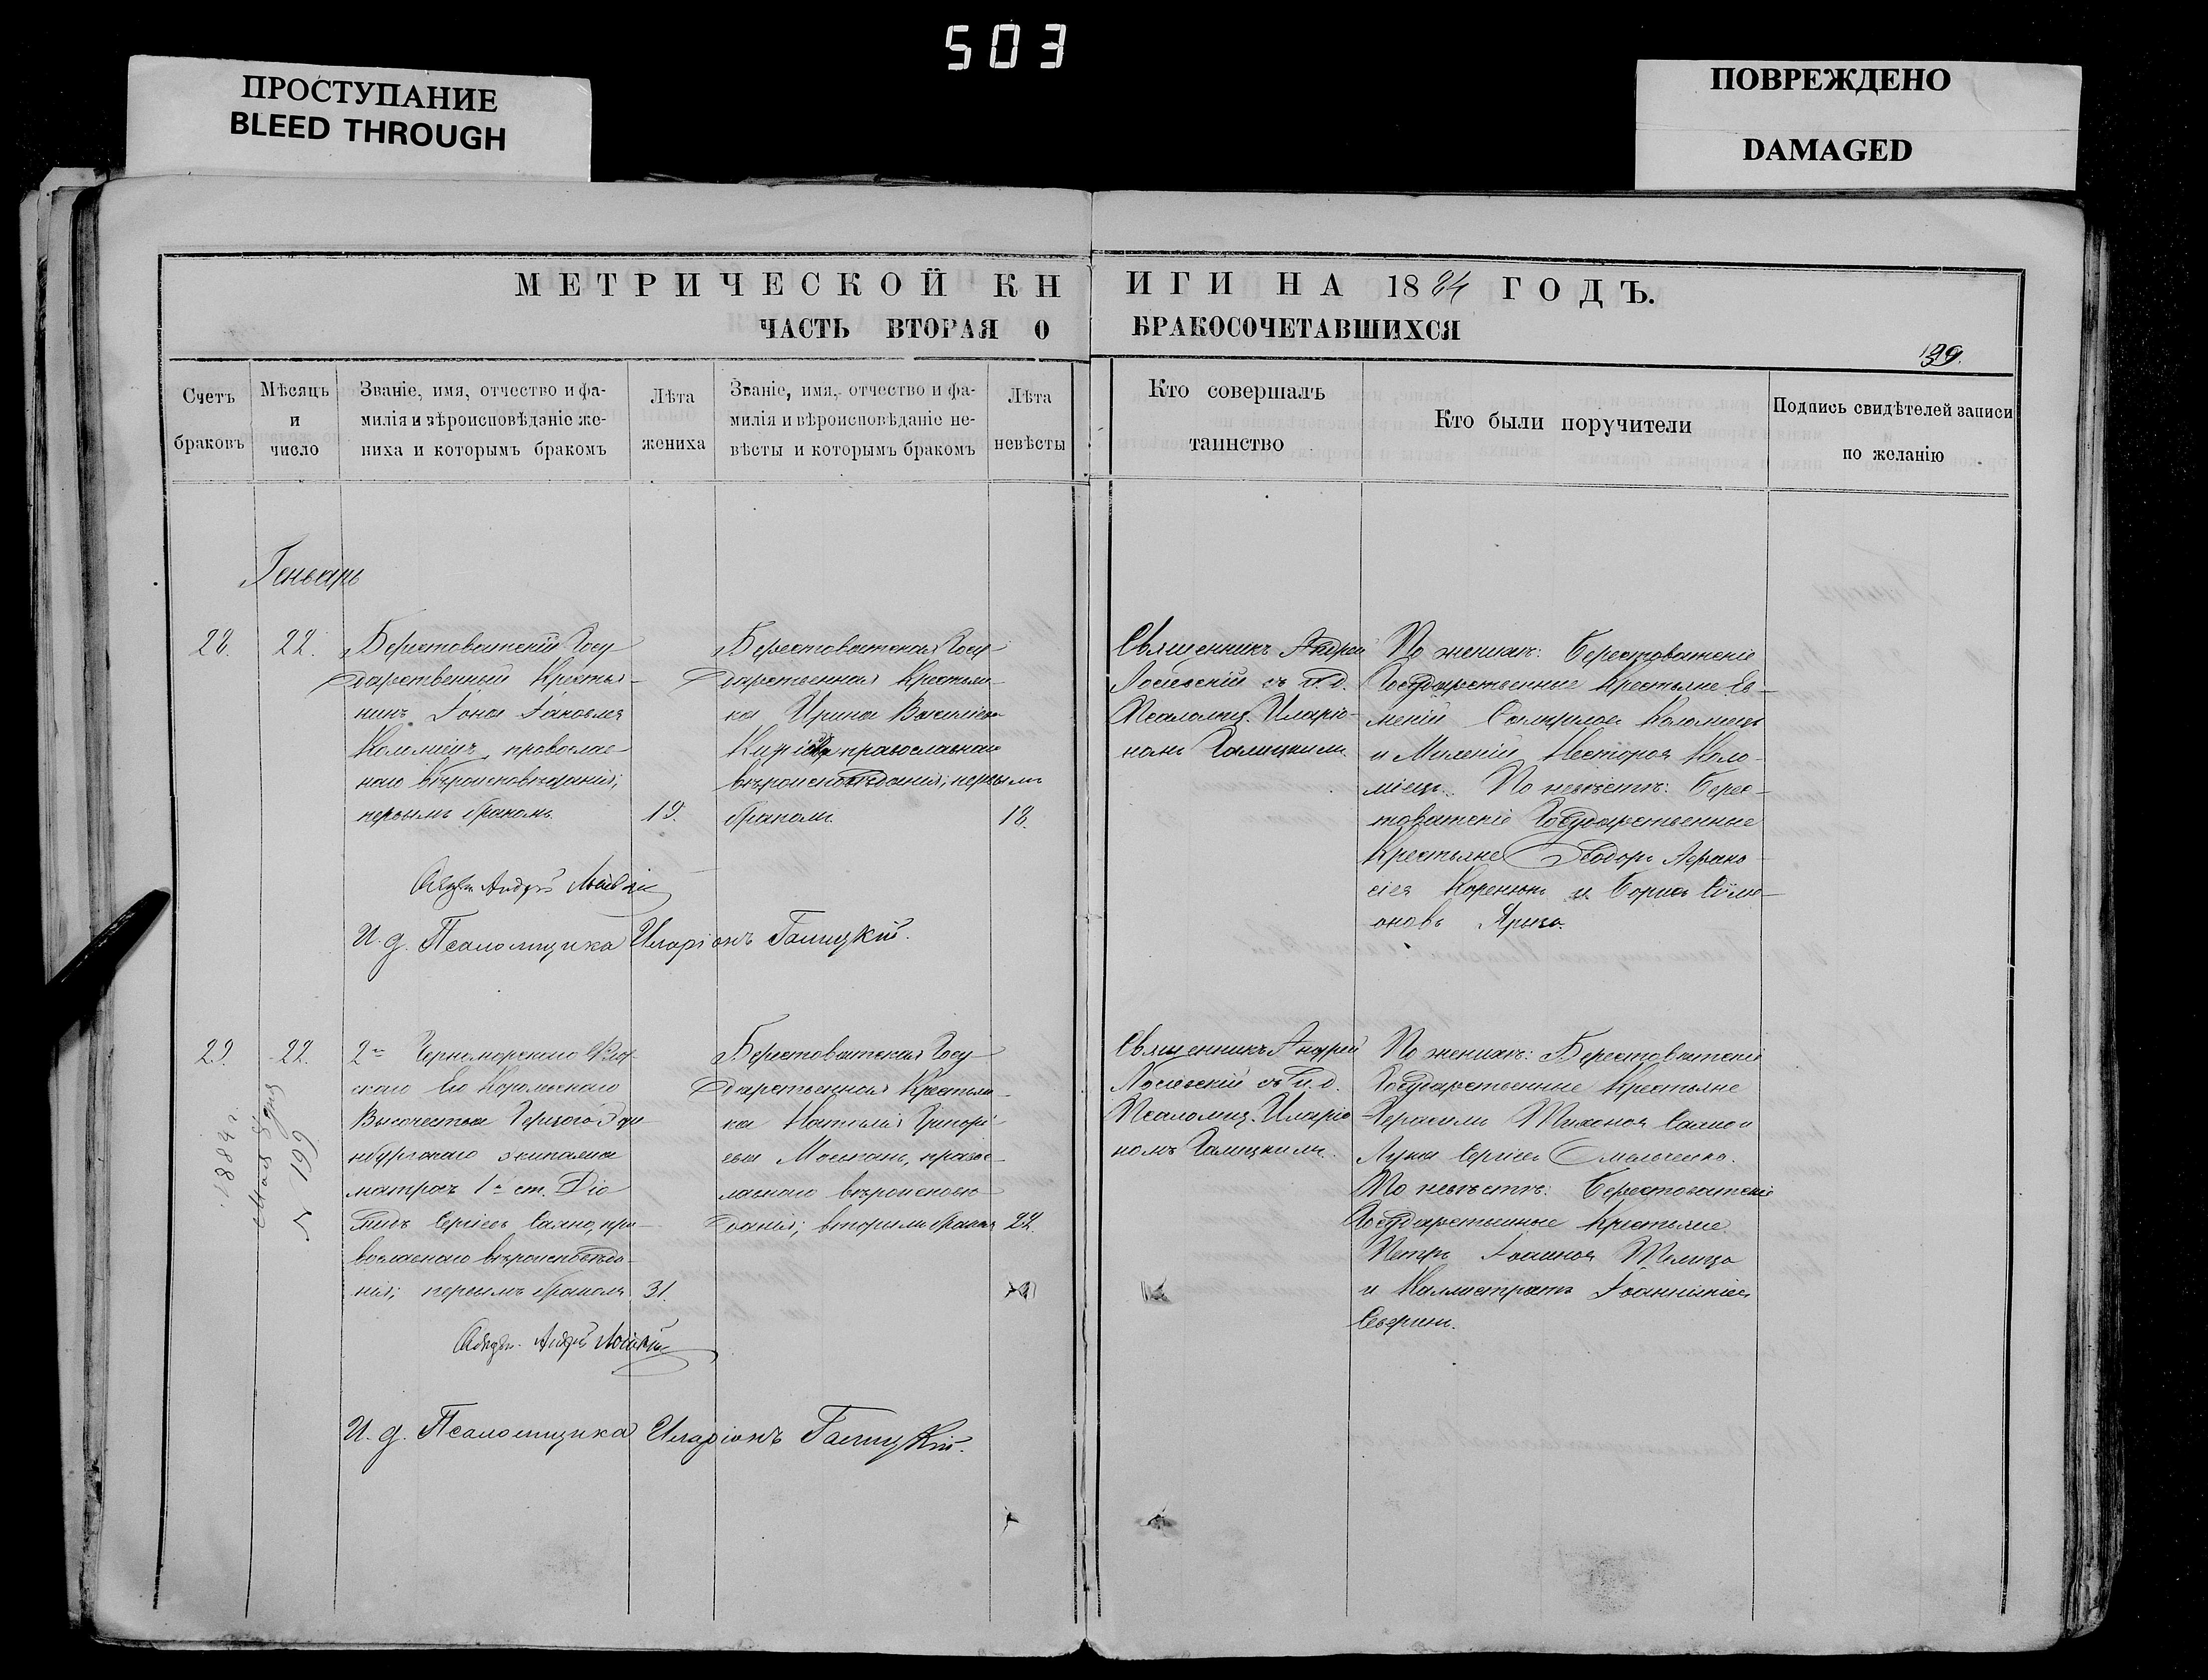 503
ПРОСТУПАНИЕ
BLEED THROUGH
ПОВРЕЖДЕНО
DAMAGED
МЕТРИЧЕСКОЙ КНИГИ НА 1884 ГОДЪ.
ЧАСТЬ ВТОРАЯ О БРАКОСОЧЕТАВШИХСЯ
139.
Счетъ
браковъ
Мѣсяцъ
и
число
Званіе, имя, отчество и фа-
милія и вѣроисповѣданіе же-
ниха и которымъ бракомъ
Лѣта
жениха
Званіе, имя, отчество и фа-
милія и вѣроисповѣданіе не-
вѣсты и которымъ бракомъ
Лѣта
невѣсты
Кто совершалъ
таинство
Кто были поручители
Подпись свидѣтелей записи
по желанію
Геньварь
28.
22.
Берестоватскій Госу
дарственный Крестья-
нинъ Іона Іаковлев
Коломіецъ, православ-
наго вѣроисповѣданія;
первымъ бракомъ.
19.
Берестоватская Госу
дарственная Крестьян-
ка Ирина Василіева
православнаго
вѣроисповѣданія; первымъ
бракомъ.
18.
Священникъ Андрей
Лосіевскій съ и. д.
Псаломщ. Иларіо-
номъ Галицкимъ.
По женихѣ: Берестоватскіе
Государственные Крестьяне Ев-
меній Коломіецъ
и Несторов Коло-
міецъ. По невѣстѣ: Берес-
товатскіе Государственные
Крестьяне Ѳеодоръ Афана-
сіев Коренюкъ и Борисъ Симе-
оновъ
Андрей
И. д. Псаломщика Иларіонъ Галицкій.
29.
22.
1884 г.
Мая 8 дня
№ 196
2го Черноморскаго Флот-
скаго Его Королевскаго
Высочества Герцога Эди
нбургскаго экипажа
матросъ 1й ст. Діо
мидъ Сергіевъ Саяно, пра-
вославнаго вѣроисповѣда-
нія; первымъ бракомъ
31.
Берестоватская Госу
дарственная Крестьян-
ка Наталія Григорі-
ева правос-
лавнаго вѣроисповѣ-
данія; вторымъ бракомъ
22.
Священникъ Андрей
Лосіевскій съ и. д.
Псаломщ. Иларіо
номъ Галицкимъ.
По женихѣ: Берестоватскіе
Государственные Крестьяне
Герасимъ Тихонов Саяно и
Лука Сергіевъ
По невѣстѣ: Берестоватскіе
Государственные Крестьяне
Петръ Іоаннов
и Каллистратъ Іоанникіев
Северинъ.
Андрей
И. д. Псаломщика Иларіонъ Галицкій.